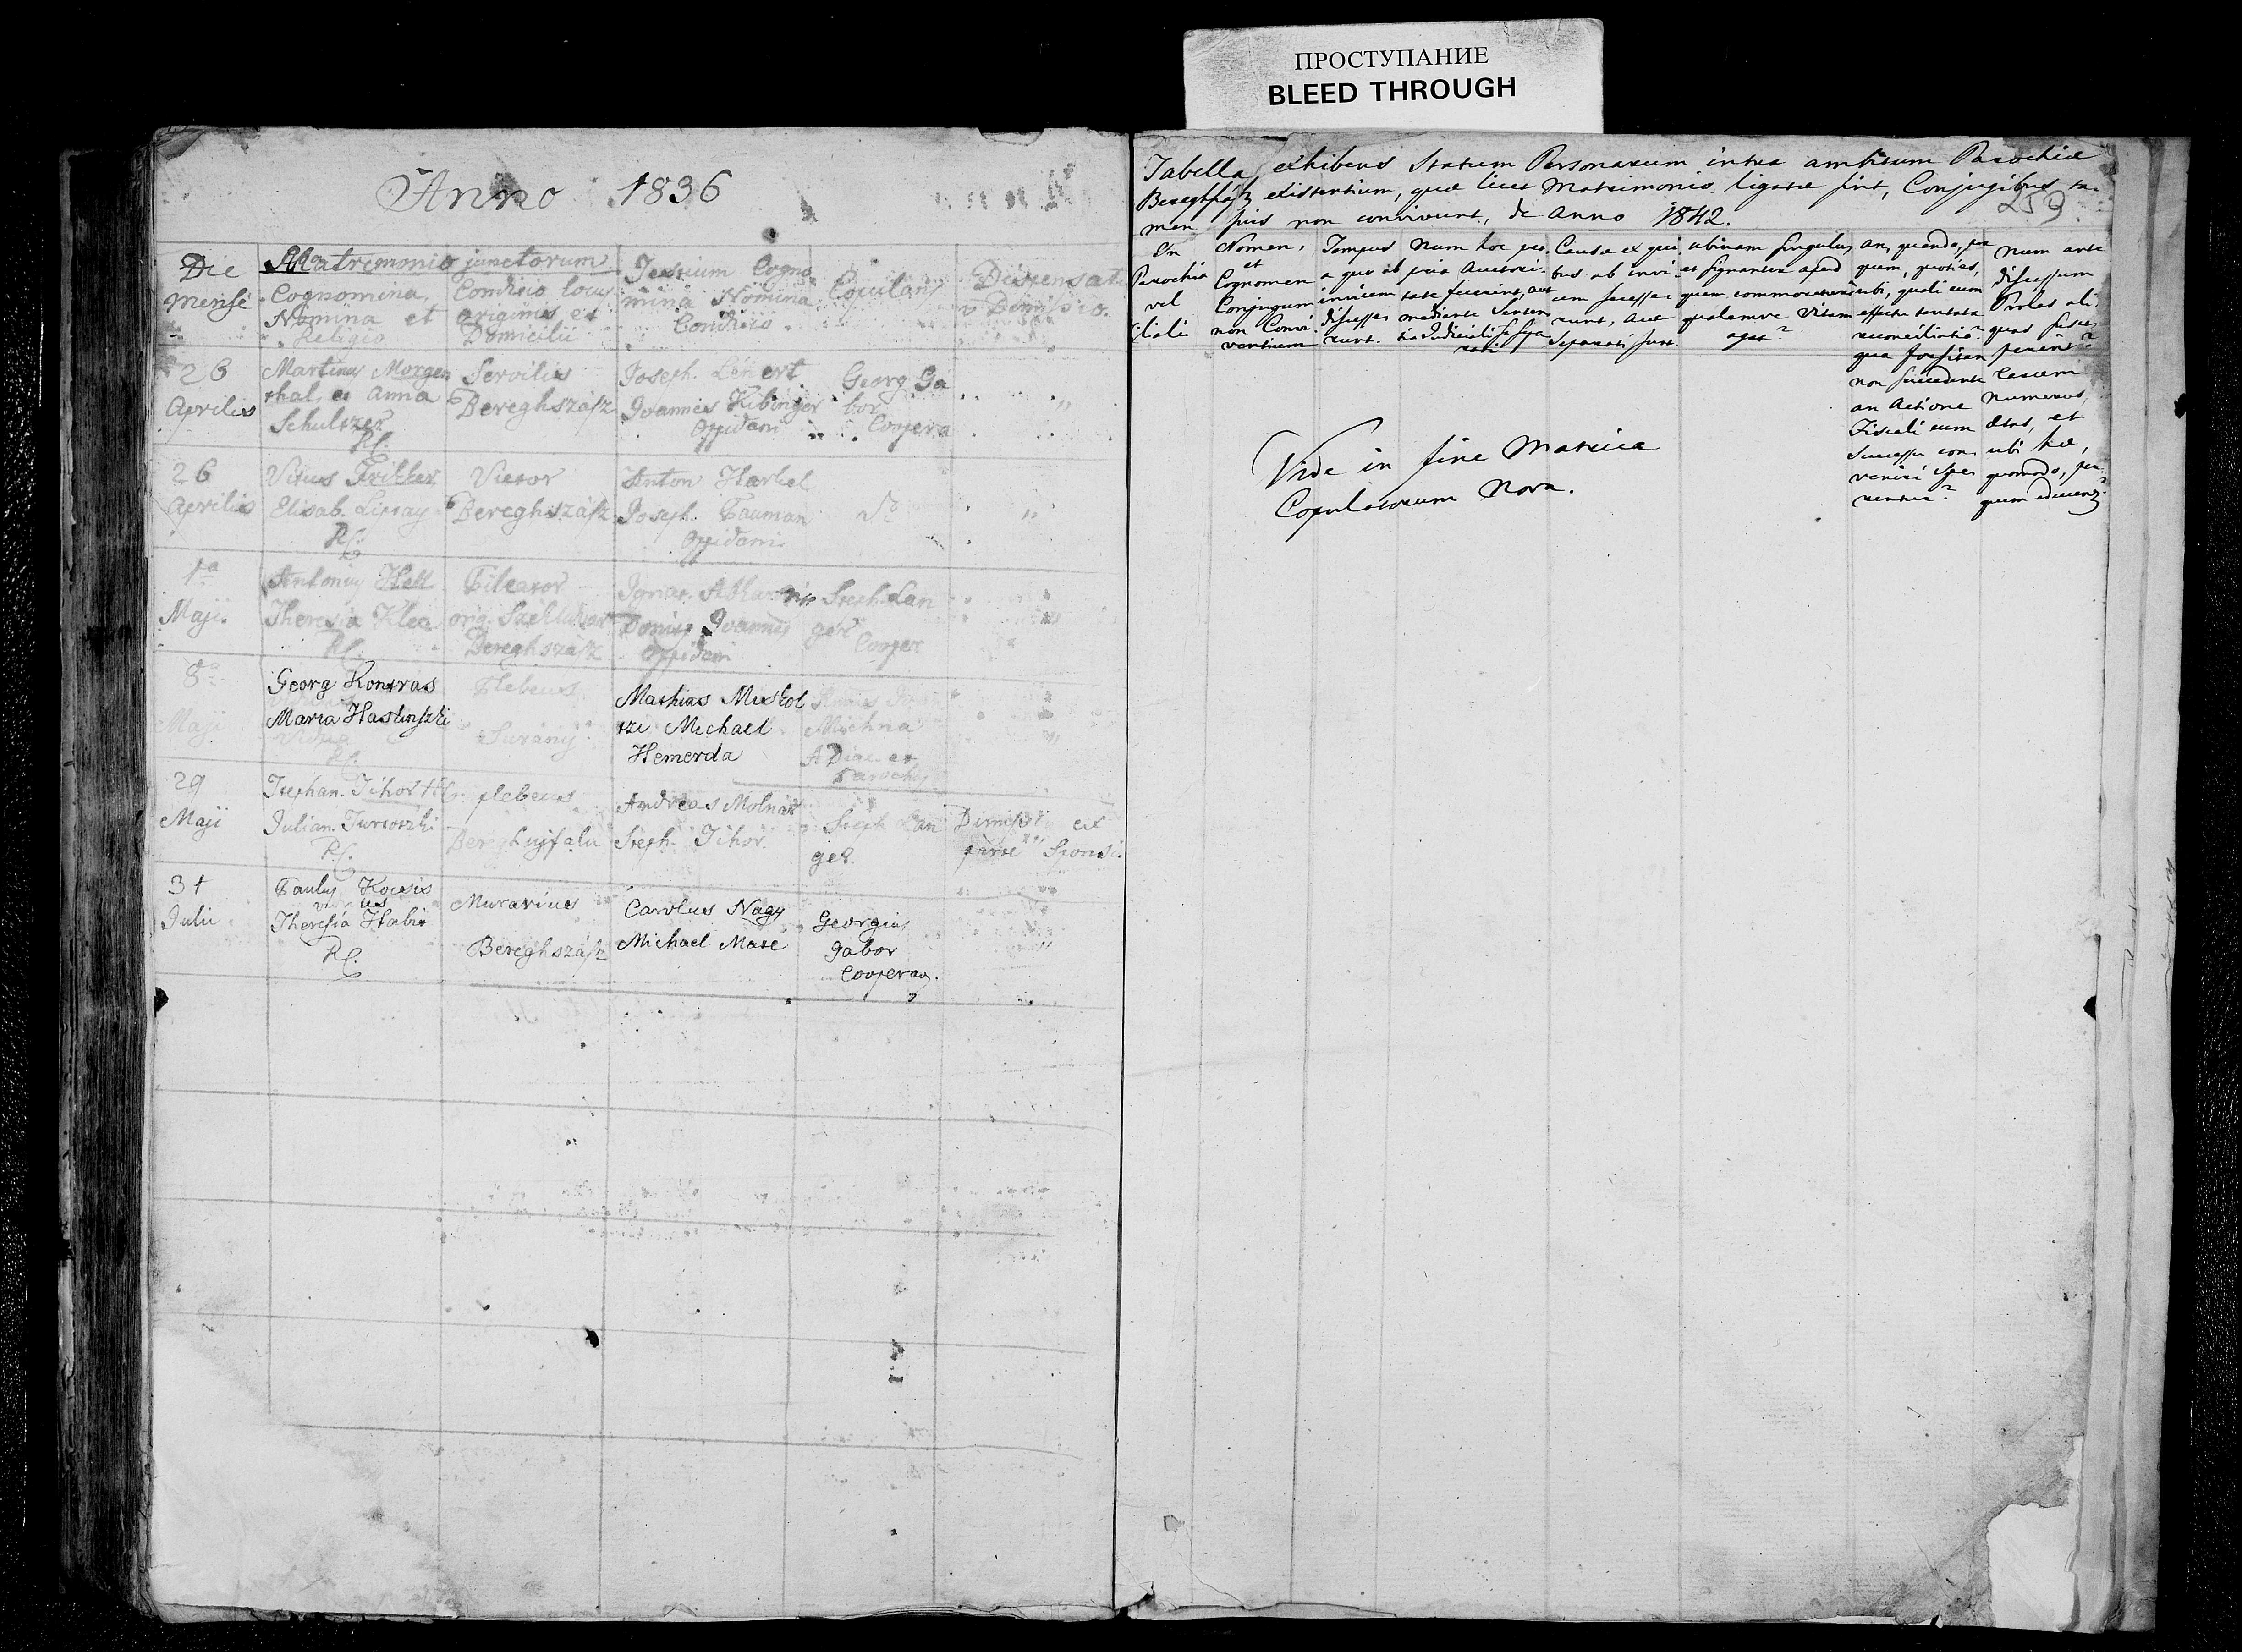 ПРОСТУПАНИЕ
BLEED THROUGH
Anno 1836
Die
Mense
Matrimonio junctorum
Cognomina,
Nomina et
Religio
Conditio locus
originis et
Domicilii
Testium Cogno
mina Nomina
Conditio
Copulans
Dispensat.
v Dimissio.
26
Aprilis
Martinus Morgen
thal, et Anna
Schultzer
RC.
Servilis
Bereghszász
Joseph. Lénert
Joannes Kibinger
Oppidani
Georg Gá
bor
Coopera
26
Aprilis
Vitus Frikker
Elisab. Lipray
RC.
Vietor
Bereghszász
Anton Harkel
Joseph. Tauman
Oppidani
1a
Maji.
Antonius Hell
Theresia Klea
RC.
Fileator
orig.
Bereghszász
Ignat.
Joannes
Oppidani
Steph. Lan
ger
Cooper
8a
Maji
Georg Kontras
Maria Haslinszki
Vidua
RC.
Plebeus
Surány
Mathias Miskol
tzi Michael
Hemerda
Michna
A Diac. et
Parochus
29
Maji
Stephan. Tihor
Julian. Turcoszki
RC.
plebeus
Bereghujfalu
Andreas Molnár
Steph. Tihor
Steph Lan
ger.
Dimiss. ex
parte Sponsi.
31
Julii
Paulus Kocsis
viduus
Theresia Habir
RC.
Murarius
Bereghszász
Carolus Nagy
Michael Mate
Georgius
Gabor
Cooperas.
Tabella exhibens Statum Personarum intra ambitum Parochiæ
Bereghszász existentium, quæ licet Matrimonio ligatæ sint, Conjugibus ta-
men suis non convivunt, de Anno 1842.
259
In
Parochia
vel
filiali
Nomen,
et
Cognomen
Conjugum
non Convi-
ventium
Tempus
a quo ab
invicem
discesse
runt.
Num hoc pro-
pria Auctori-
tate fecerint, aut
mediante Senten
tia Judiciali se sepa
rati
Causa ex qui
bus ab invi-
cem secesse
runt, aut
separati sunt
ubinam singulus
et signanter apud
quem commoretur
qualemve Vitam
agat?
an, quando, per
quem, quoties,
ubi, quali cum
effectu tentata
reconciliatio?
qua forsitan
non succedente
an Actione
Fiscali cum
Successu con
veniri spe
rentur?
Num ante
discessum
Proles ali
quas susce
perint?
earum
Numerus,
ætas, et
ubi hæ,
quomodo, per
quem educent?
Vide in fine Matricæ
Copulatorum Nova.